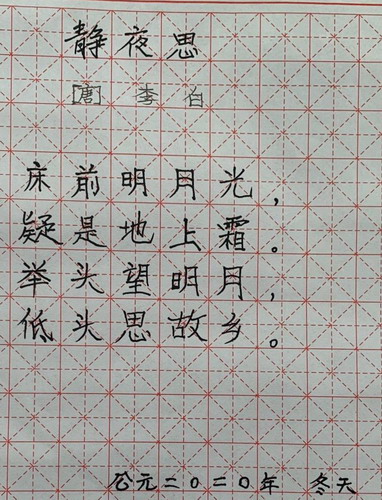 静夜思
[唐] 李白
床前明月光，
疑是地上霜。
举头望明月，
低头思故乡。
公元二0二0年 冬天